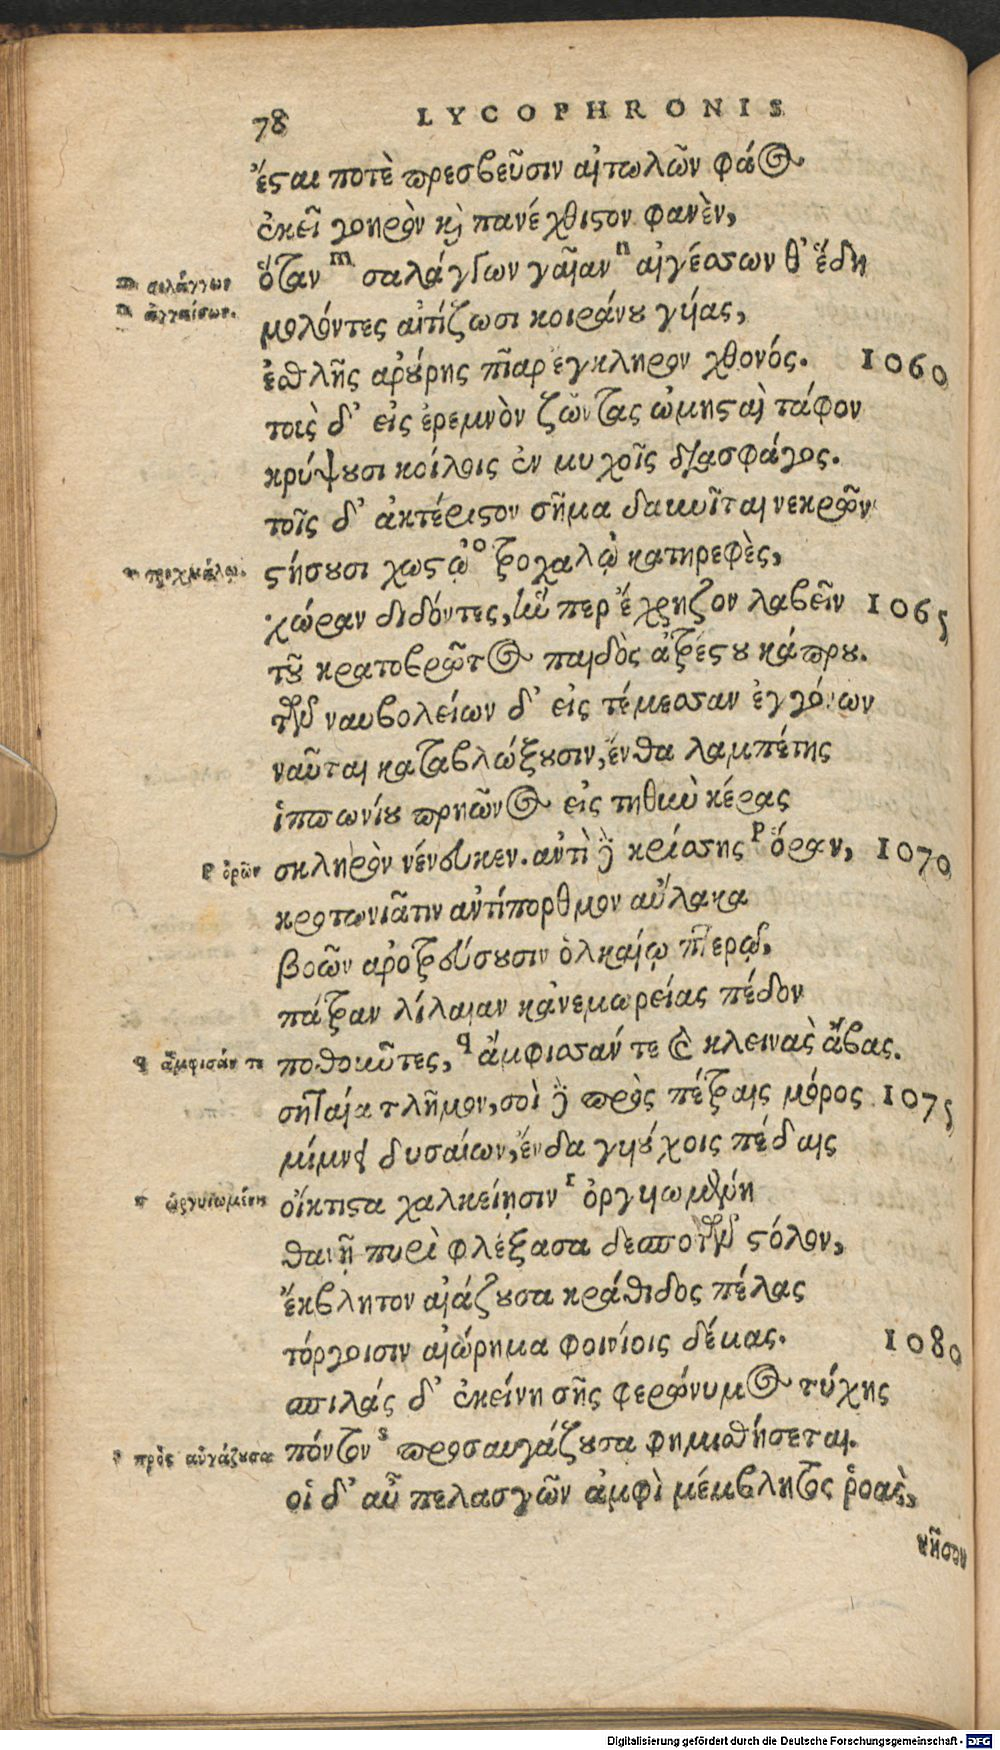 78 LYCOPHRONIS
ἔσται ποτὲ πρεσβεῦσιν αἰτωλῶν φάος
ἐκεῖ γοηρὸν καὶ πανέχθιστον φανὲν,
ὅταν m σαλάγγων γαῖαν n αἰγέασων θ' ἕδη
m σιλάγγων
n ἀγγαίσων.
μολόντες αἰτίζωσι κοιράνου γύας,
ἐσθλῆς ἀρούρης πῖαρ ἔγκληρον χθονός. 1060
τοὺς δ' εἰς ἐρεμνὸν ζῶντας ὠμησταὶ τάφον
κρύψουσι κοίλοις ἐν μυχοῖς διασφάγος.
τοῖς δ' ἀκτέριστον σῆμα δαυνῖται νεκρῶν
στήσουσι χωστῷ ο τροχαλῷ κατηρεφὲς,
ο τροχμάλῳ.
χώραν διδόντες, ἥν περ ἔχρῃζον λαβεῖν 1065
τοῦ κρατοβρῶτος παιδὸς ἀτρέστου κάπρου.
τῶν ναυβολείων δ' εἰς τέμεσαν ἐγγόνων
ναῦται καταβλώξουσιν, ἔνθα λαμπέτης
ἱππωνίου πρηῶνος εἰς τηθὺν κέρας
σκληρὸν νένευκεν. ἀντὶ δὲ κρίσσης p ὅραν, 1070
p ὁρῶν
κροτωνιᾶτιν ἀντίπορθμον αὔλακα
βοῶν ἀροτρεύσουσιν ὁλκαίῳ πτερῷ,
πάτραν λίλαιαν κἀνεμωρείας πέδον
ποθοῦντες, q ἄμφισσάν τε καὶ κλεινὰς ἄβας.
q ἄμφισάν τε
σηταία τλῆμον, σοὶ δὲ πρὸς πέτραις μόρος 1075
μίμνει δυσαίων, ἔνθα γυιούχοις πέδαις
οἴκτιστα χαλκείῃσιν r ὀργυιωμένη
r ὠργυιωμένη
θανῇ πυρὶ φλέξασα δεσποτῶν στόλον,
ἔκβλητον αἰάζουσα κράθιδος πέλας
τόργοισιν αἰώρημα φοινίοις δέμας. 1080
σπιλάς δ' ἐκείνη σῆς φερώνυμος τύχης
πόντον s προσαυγάζουσα φημισθήσεται.
s πρὸς αὐγάζουσα
οἱ δ' αὖ πελασγῶν ἀμφὶ μέμβλητος ῥοὰς,
νῆσον
Digitalisierung gefördert durch die Deutsche Forschungsgemeinschaft - DFG